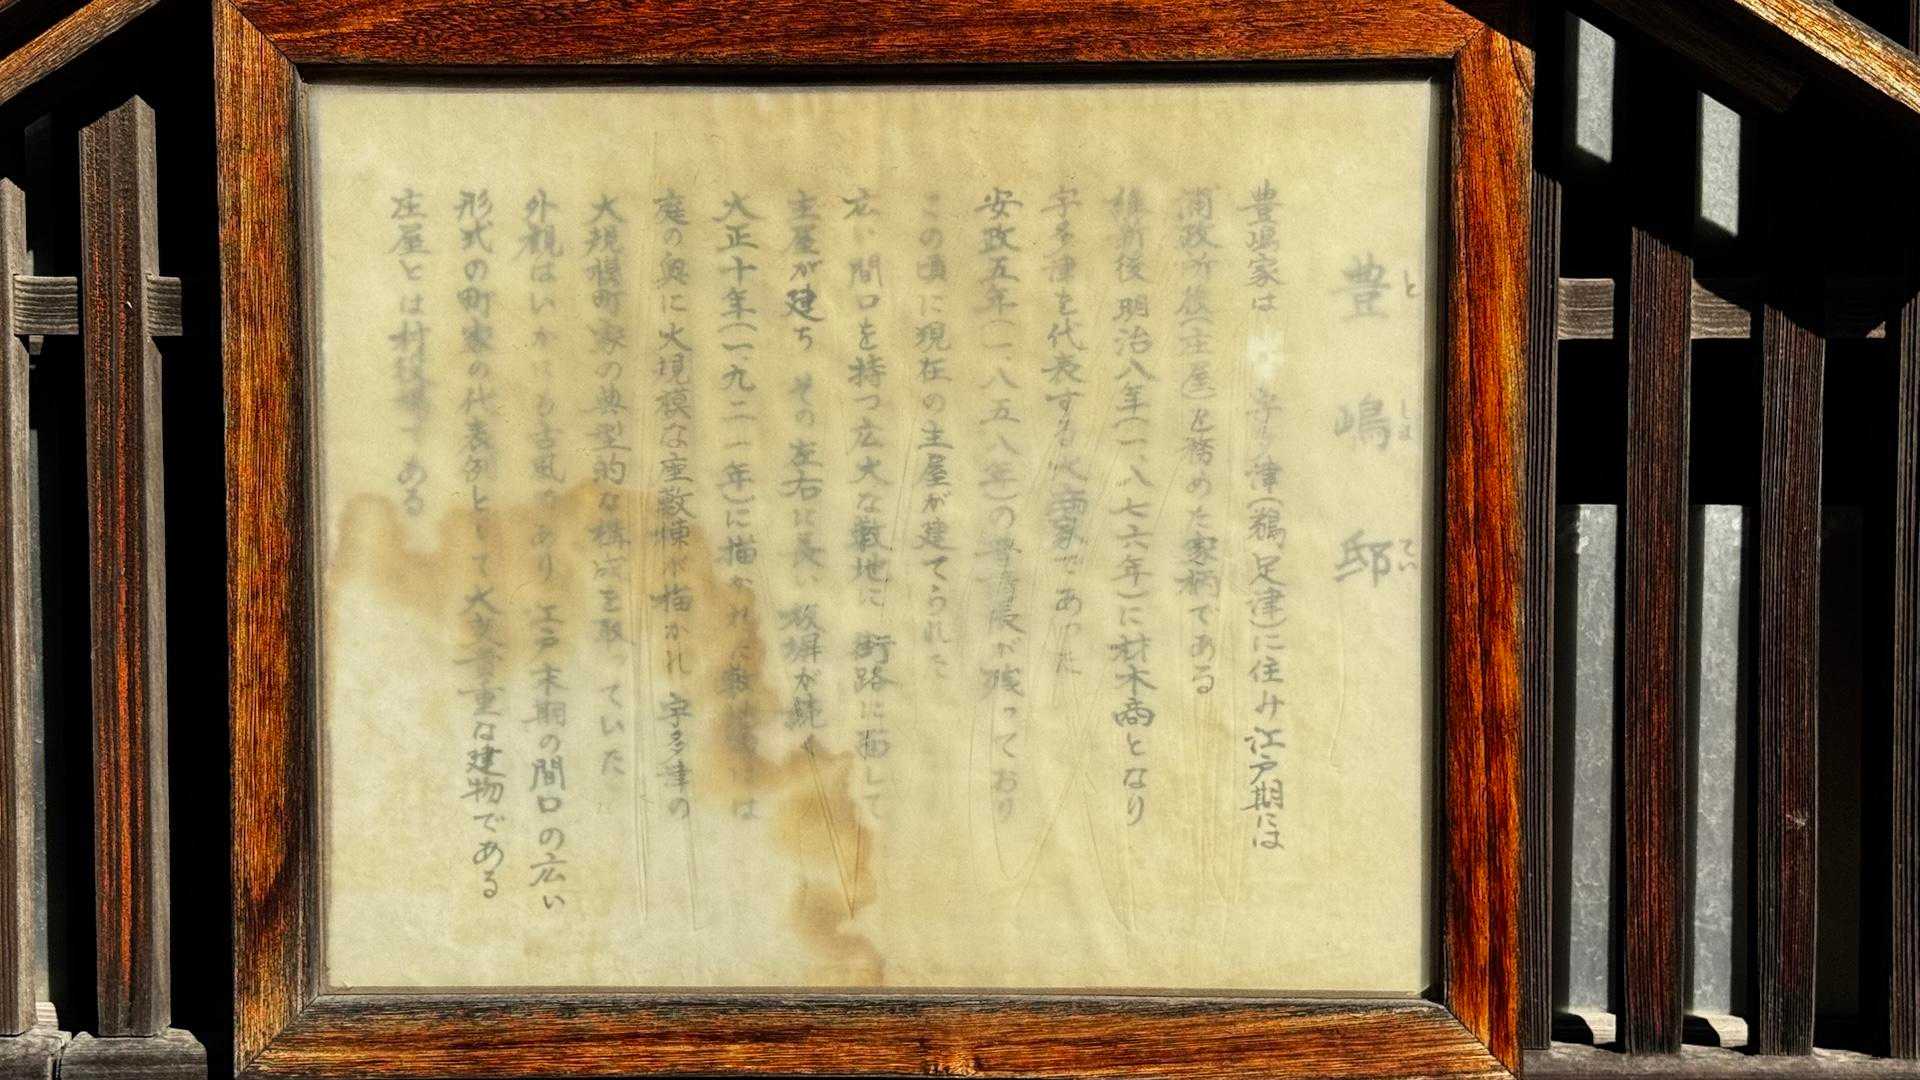 豊嶋邸
としまてい
豊嶋家は 宇多津(鵜足津)に住み江戸期には
政所後(庄屋)を務めた家柄である
維新後明治八年(一、八七六年)に材木商となり
宇多津を代表する大商家であった
安政五年(一、八五八年)の普請帳が残っており
この頃に現在の主屋が建てられた
広い間口を持つ広大な敷地に 街路に面して
主屋が建ち その左右に長い 板塀が続く
大正十年(一、九二一年)に描かれた敷地 には
庭の奥に大規模な座敷棟が描かれ 宇多津の
大規模町家の典型的な構成を取っていた
外観はいかにも古風であり 江戸末期の間口の広い
形式の町家の代表例として大変貴重な建物である
庄屋とは村役 である